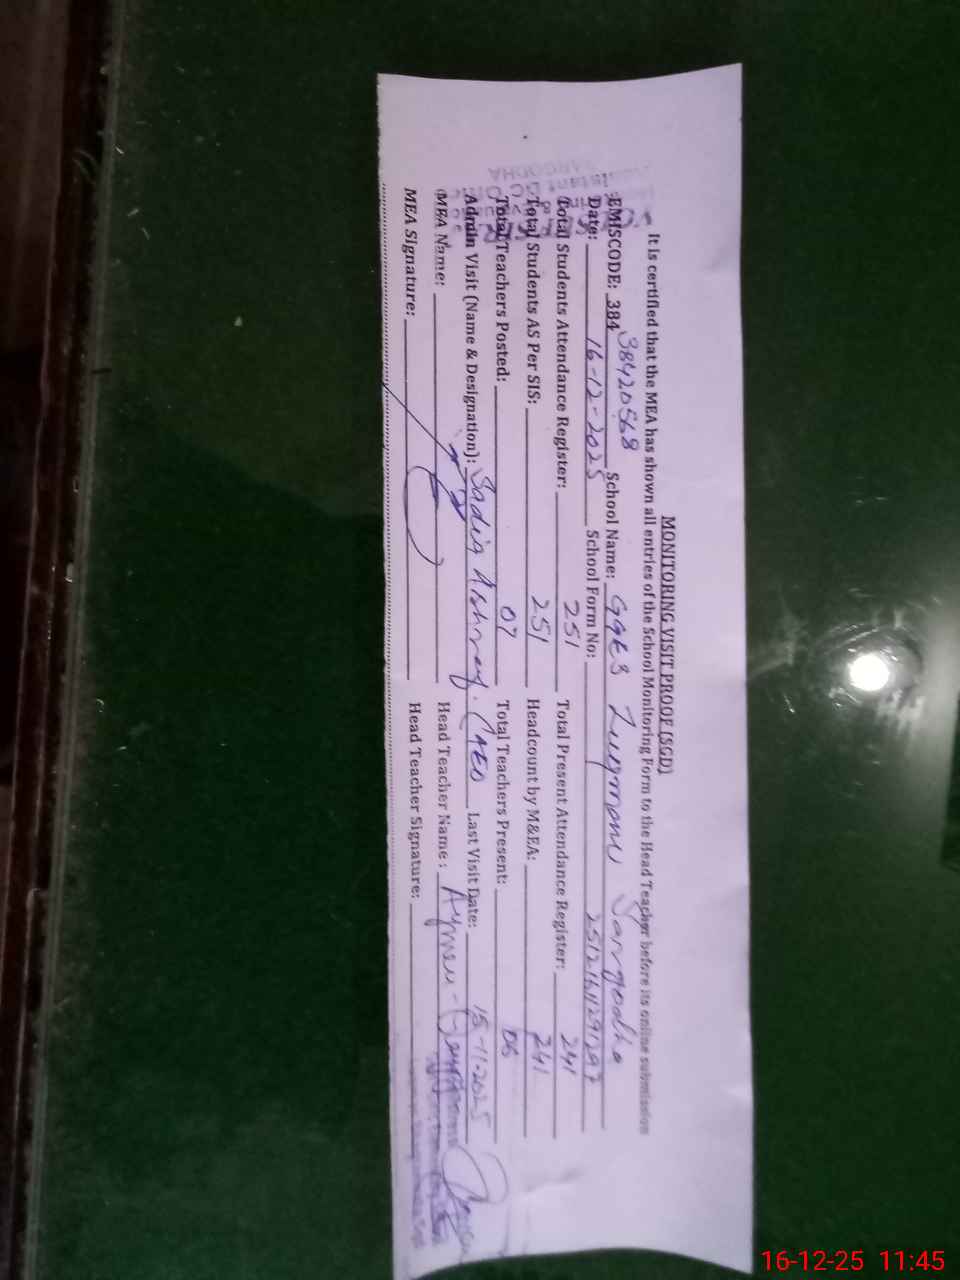 MONITORING VISIT PROOF (SGD)
It is certified that the MEA has shown all entries of the School Monitoring Form to the Head Teacher before its online submission
EMISCODE: 384 38420568 School Name: GGES Luqmanu Sargodha
Date: 16-12-2025 School Form No: 25121611291297
Total Students Attendance Register: 251 Total Present Attendance Register: 241
Total Students AS Per SIS: 251 Headcount by M&EA: 241
Total Teachers Posted: 07 Total Teachers Present: 06
Admin Visit (Name & Designation): Sadia Ashraf. (AEO Last Visit Date: 15-11-2025
MEA Name: Head Teacher Name:
MEA Signature: Head Teacher Signature:
SARGODHA
16-12-25 11:45